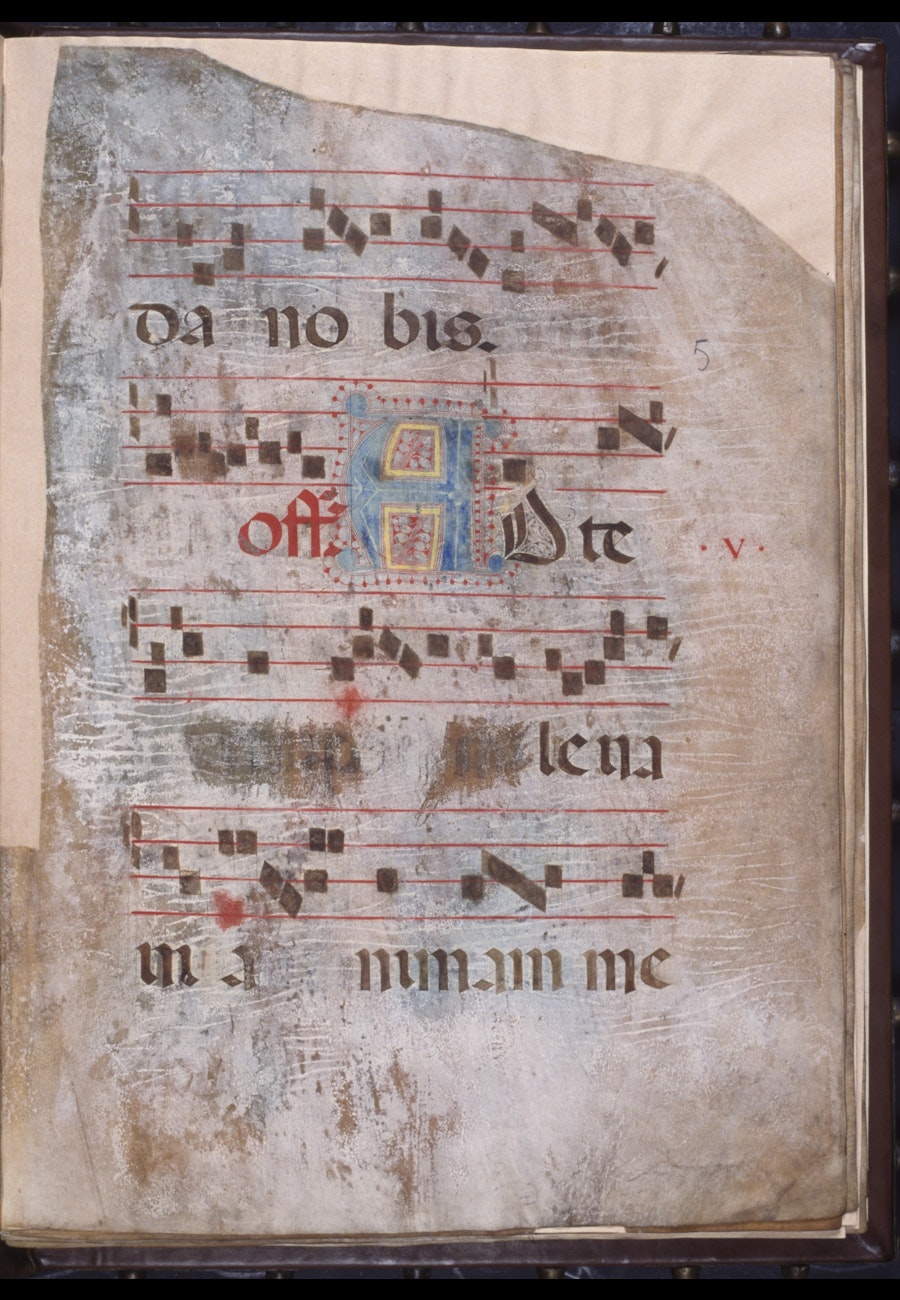 da no bis.
5
off. AD te
· v ·
leua
ui a nimam me